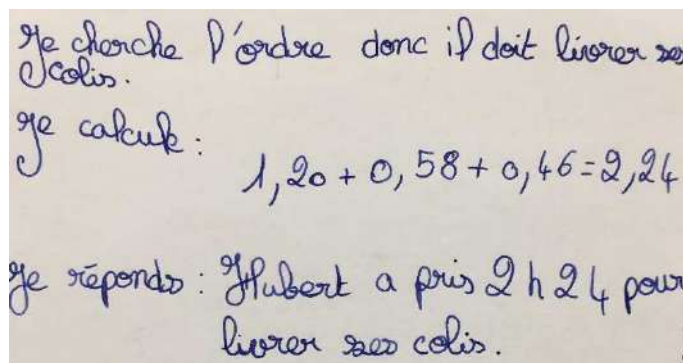 Je cherche l'ordre donc il doit livrer ses
colis.
Je calcule :
1,20 + 0,58 + 0,46 = 2,24
Je réponds : Hubert a pris 2 h 24 pour
livrer ses colis.